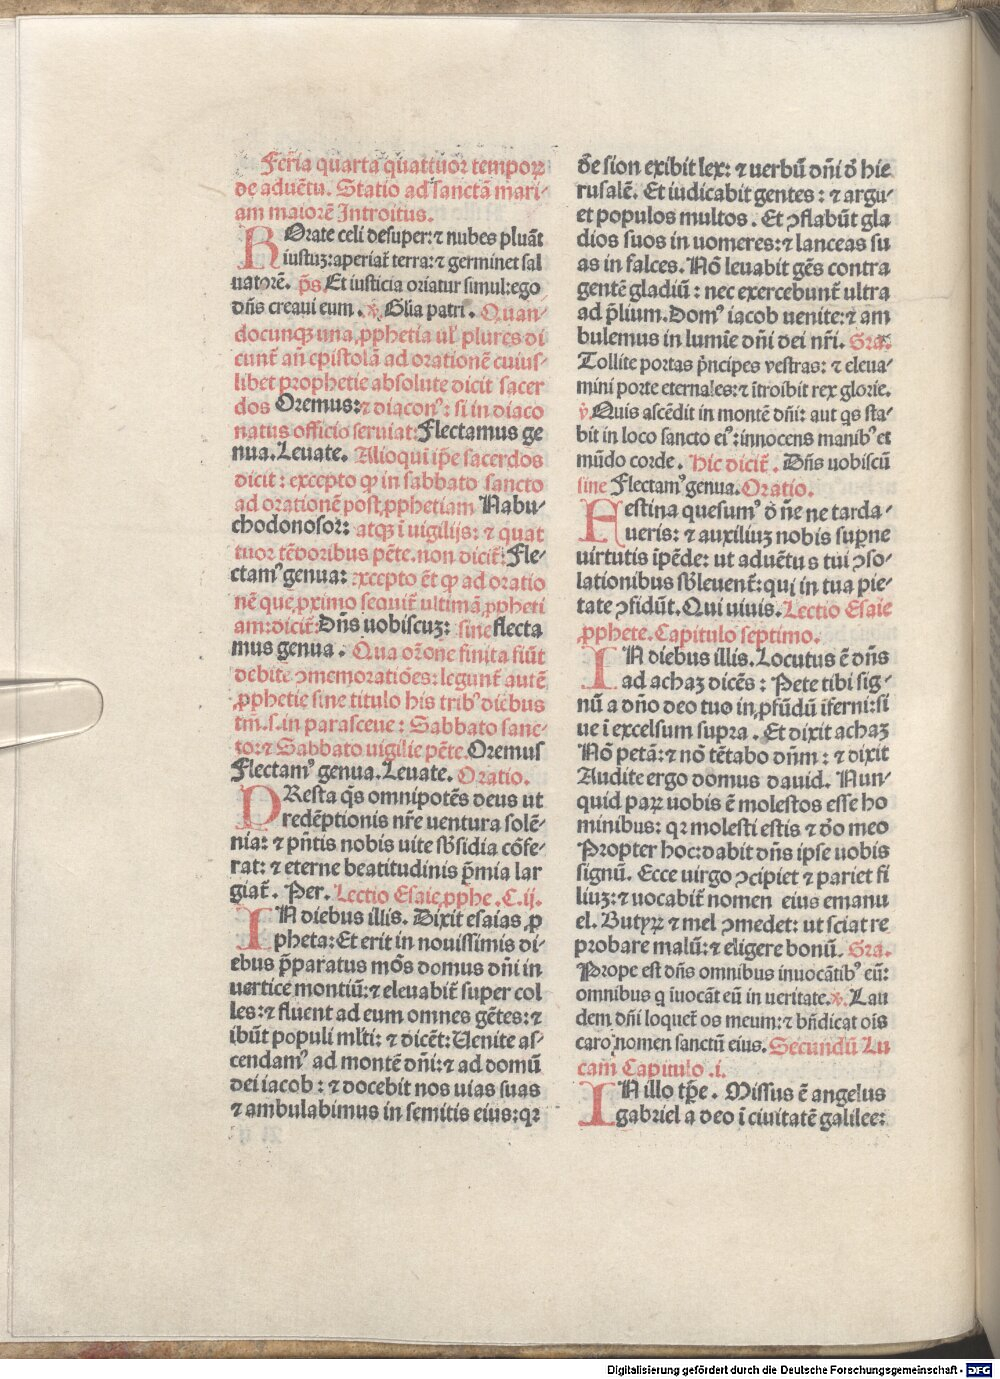 Feria quarta quattuor temporꝝ
de aduētu. Statio ad sanctā mari-
am maiorē Introitus.
ROrate celi desuper: ⁊ nubes pluāt
iustuꝫ: aperiat̄ terra: ⁊ germinet sal
uatorē. p̄s. Et iusticia oriatur simul: ego
dn̄s creaui eum. ℣. Glia patri. Quan
docunqꝫ una ꝓphetia ul' plures di
cunt̄ an̄ epistolā ad orationē cuius-
libet prophetie absolute dicit sacer
dos Oremus: ⁊ diaconꝰ: si in diaco
natus officio seruiat: Flectamus ge
nua. Leuate. Alioqui ip̄e sacerdos
dicit: excepto ꝙ in sabbato sancto
ad orationē post ꝓphetiam Nabu-
chodonosor: atqꝫ ī uigilijs: ⁊ quat
tuor tēporibus pēte. non dicit̄: Fle-
ctamꝰ genua: excepto ēt ꝙ ad oratio
nē que ꝓximo sequit̄ ultimā ꝓpheti
am: dicit̄: Dn̄s uobiscuꝫ: sine flecta
mus genua. Qua or̄one finita fiūt
debite ꝯmemoratiōes: legunt̄ autē
ꝓphetie sine titulo his tribꝰ diebus
tm̄. s. in parasceue: Sabbato sanc-
to: ⁊ Sabbato uigilie pēte. Oremus
Flectamꝰ genua. Leuate. Oratio.
PResta q̄s omnipotēs deus ut
redēptionis nr̄e uentura solē-
nia: ⁊ pn̄tis nobis uite sb̄sidia cōfe-
rat: ⁊ eterne beatitudinis p̄mia lar
giat̄. Per. Lectio Esaie ꝓphe. C. ij.
IN diebus illis. Dixit esaias ꝓ
pheta: Et erit in nouissimis di-
ebus p̄paratus mōs domus dn̄i in
uertice montiū: ⁊ eleuabit̄ super col
les: ⁊ fluent ad eum omnes gētes: ⁊
ibūt populi ml̄ti: ⁊ dicēt: Uenite as-
cendamꝰ ad montē dn̄i: ⁊ ad domū
dei iacob: ⁊ docebit nos uias suas
⁊ ambulabimus in semitis eius: qꝛ
de sion exibit lex: ⁊ uerbū dn̄i d̄ hie
rusalē. Et iudicabit gentes: ⁊ argu-
et populos multos. Et ꝯflabūt gla
dios suos in uomeres: ⁊ lanceas su
as in falces. Nō leuabit gēs contra
gentē gladiū: nec exercebunt̄ ultra
ad p̄lium. Domꝰ iacob uenite: ⁊ am
bulemus in lumīe dn̄i dei nr̄i. Gra.
Tollite portas p̄ncipes vestras: ⁊ eleua-
mini porte eternales: ⁊ ītroibit rex glorie.
℣ Quis ascēdit in montē dn̄i: aut qs sta-
bit in loco sancto eiꝰ: innocens manibꝰ et
mūdo corde. Hic dicit̄. Dn̄s uobiscū
sine Flectamꝰ genua. Oratio.
FEstina quesumꝰ dn̄e ne tarda-
ueris: ⁊ auxiliuꝫ nobis sup̄ne
uirtutis īpēde: ut aduētus tui ꝯso-
lationibus sb̄leuent̄: qui in tua pie-
tate ꝯfidūt. Qui uiuis. Lectio Esaie
ꝓphete. Capitulo septimo.
IN diebus illis. Locutus ē dn̄s
ad achaꝫ dicēs: Pete tibi sig-
nū a dn̄o deo tuo in ꝓfūdū īferni: si
ue ī excelsum supra. Et dixit achaꝫ
Nō petā: ⁊ nō tētabo dn̄m: ⁊ dixit
Audite ergo domus dauid. Nun-
quid paꝝ uobis ē molestos esse ho
minibus: qꝛ molesti estis ⁊ d̄o meo
Propter hoc: dabit dn̄s ipse uobis
signū. Ecce uirgo ꝯcipiet ⁊ pariet fi
liuꝫ: ⁊ uocabit̄ nomen eius emanu
el. Butyꝝ ⁊ mel ꝯmedet: ut sciat re
probare malū: ⁊ eligere bonū. Gra.
Prope est dn̄s omnibus inuocātibꝰ eū:
omnibus q īuocāt eū in ueritate. ℣. Lau
dem dn̄i loquet̄ os meum: ⁊ bn̄dicat ois
caro nomen sanctū eius. Secundū Lu
cam Capitulo .i.
IN illo tp̄e. Missus ē angelus
gabriel a deo ī ciuitatē galilee:
Digitalisierung gefördert durch die Deutsche Forschungsgemeinschaft - DFG